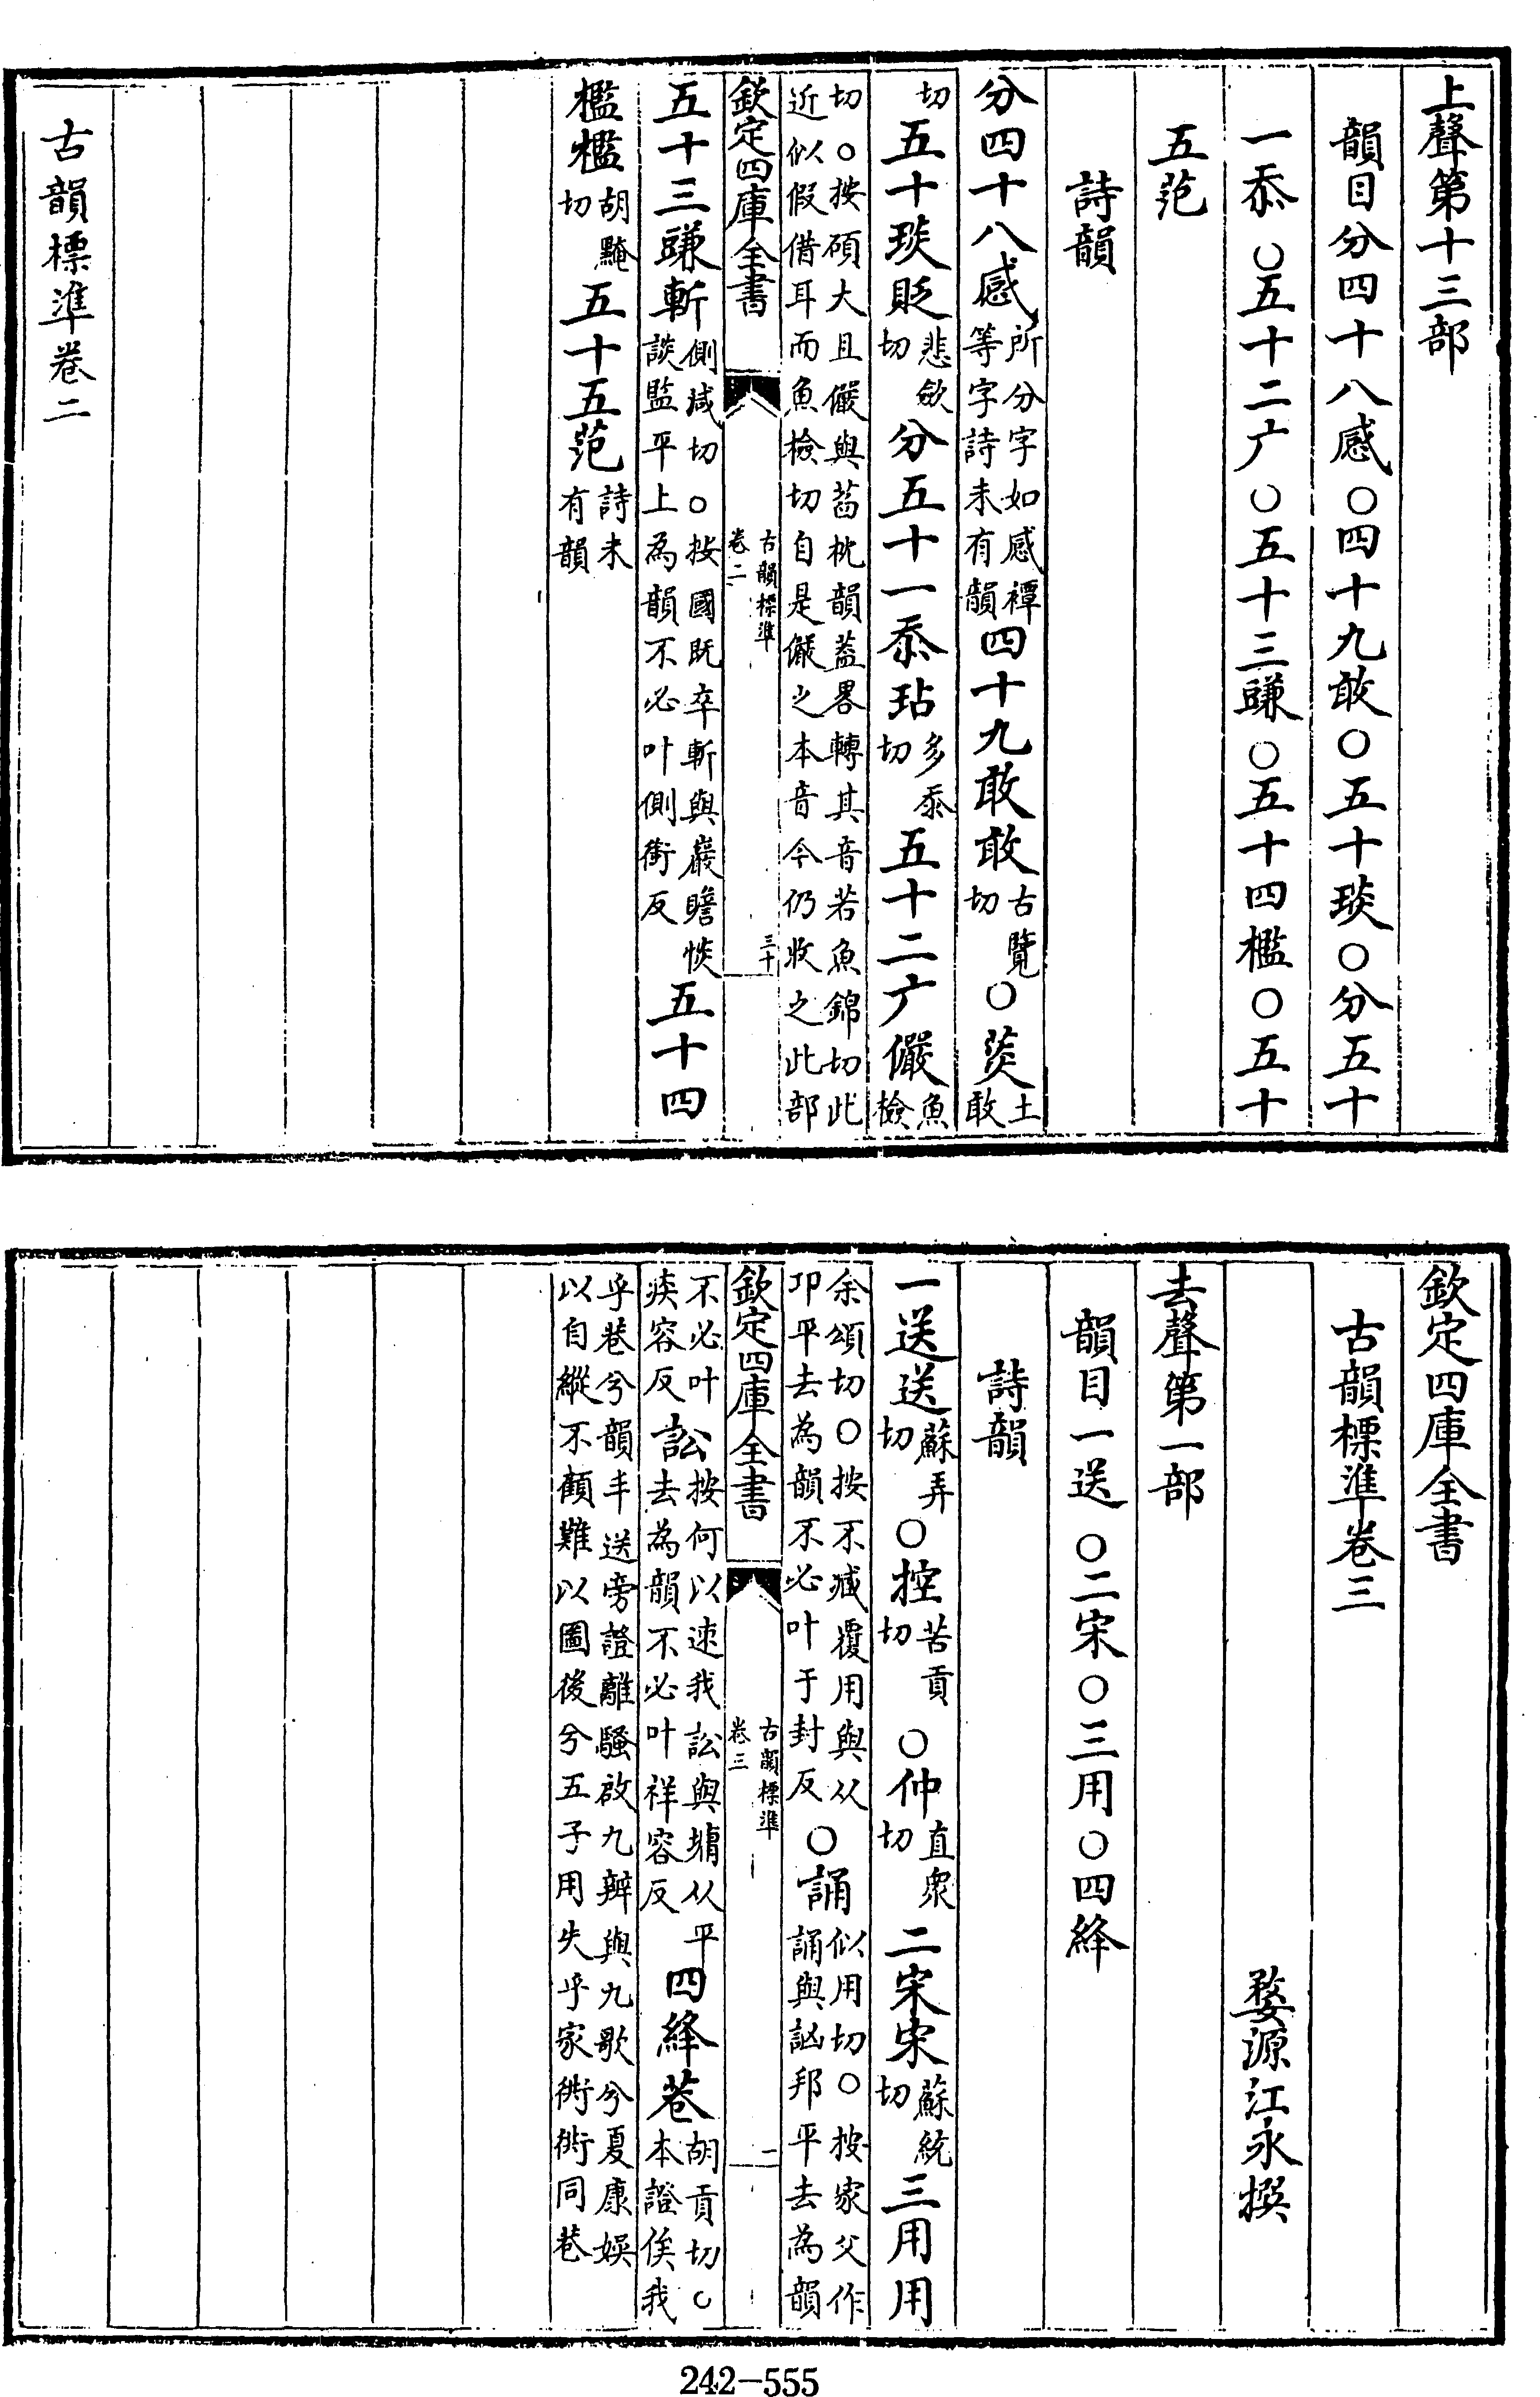 上聲第十三部
韻目分四十八感○四十九敢○五十琰○分五十
一忝○五十二广○五十三豏○五十四檻○五十
五范
詩韻
分四十八感所分字如感禫等字詩未有韻四十九敢敢古覽切○菼土敢
切五十琰貶悲斂切分五十一忝玷多忝切五十二广儼魚檢
切○按碩大且儼與萏枕韻蓋畧轉其音若魚錦切此
近似假借耳而魚檢切自是儼之本音今仍收之此部
欽定四庫全書
古韻標準
卷二
三十
五十三豏斬側減切○按國既卒斬與巖瞻惔談監平上為韻不必叶側銜反五十四
檻檻胡黤切五十五范詩未有韻
古韻標準卷二
欽定四庫全書
古韻標準卷三
婺源江永撰
去聲第一部
韻目一送○二宋○三用○四絳
詩韻
一送送蘇弄切○控苦貢切○仲直衆切二宋宋蘇統切三用用
余頌切○按不臧覆用與从邛平去為韻不必叶于封反○誦似用切○按家父作誦與訩邦平去為韻
欽定四庫全書
古韻標準
卷三
一
不必叶疾容反訟按何以速我訟與墉从平去為韻不必叶祥容反四絳巷胡貢切○本證俟我
乎巷兮韻丰送旁證離騷啟九辨與九歌兮夏康娛
以自縱不顧難以圖後兮五子用失乎家衖衖同巷
242-555